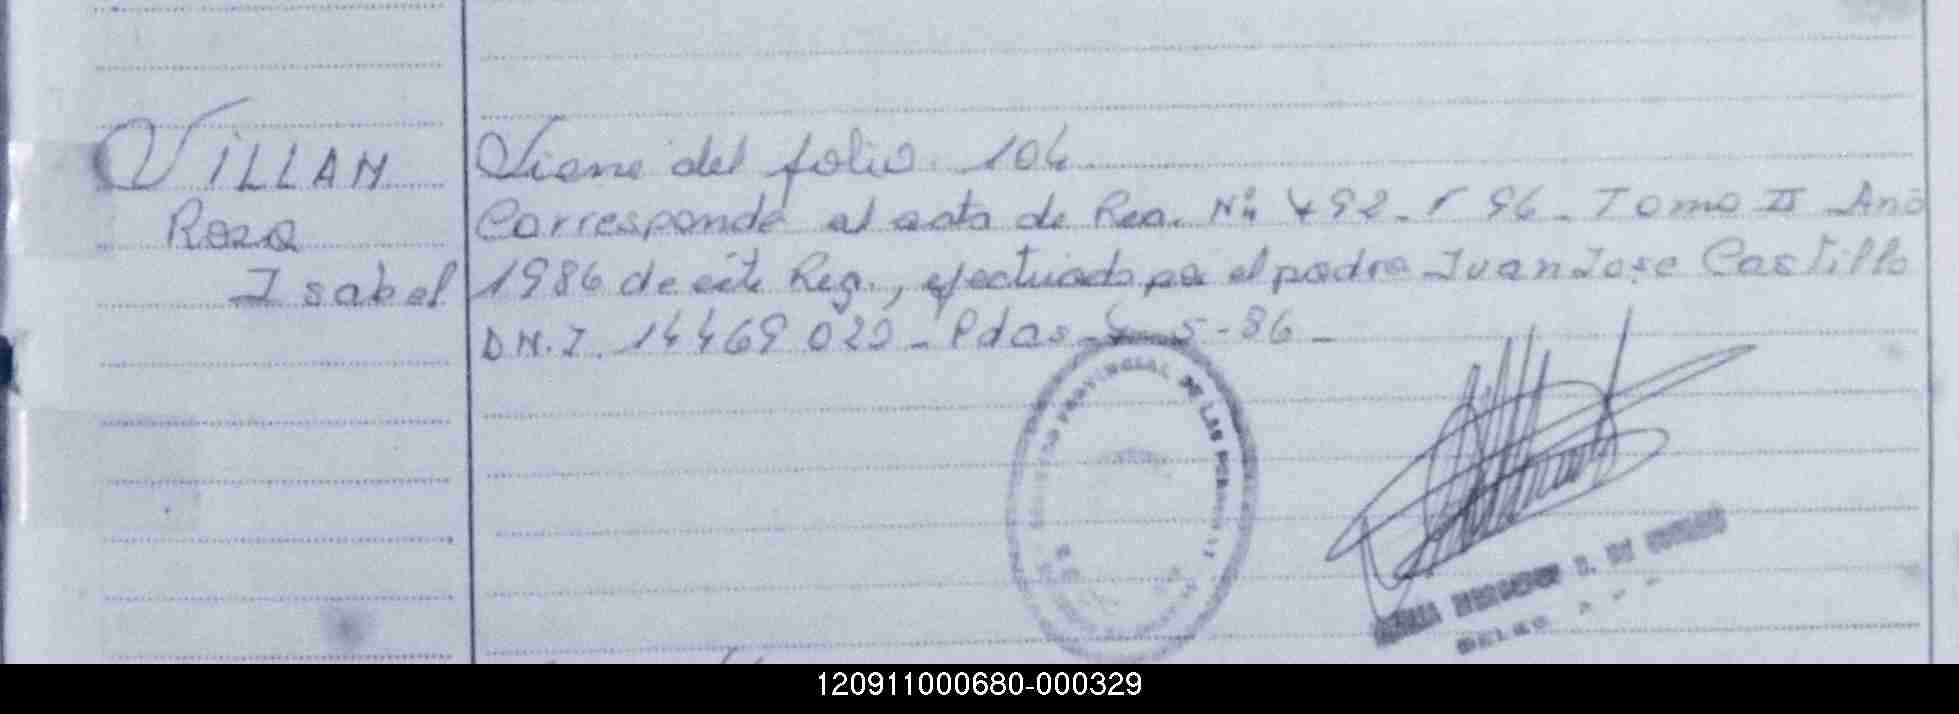 VILLAN
Rosa
Isabel
Viene del folio 104
Corresponde al acta de Rec. Nº 492 - F 96 - Tomo II Año
1986 de este Reg., efectuado por el padre Juan Jose Castillo
D.N.I. 14469 029 - Pdas - 5 - 86 -
REGISTRO PROVINCIAL DE LAS PERSONAS
120911000680-000329